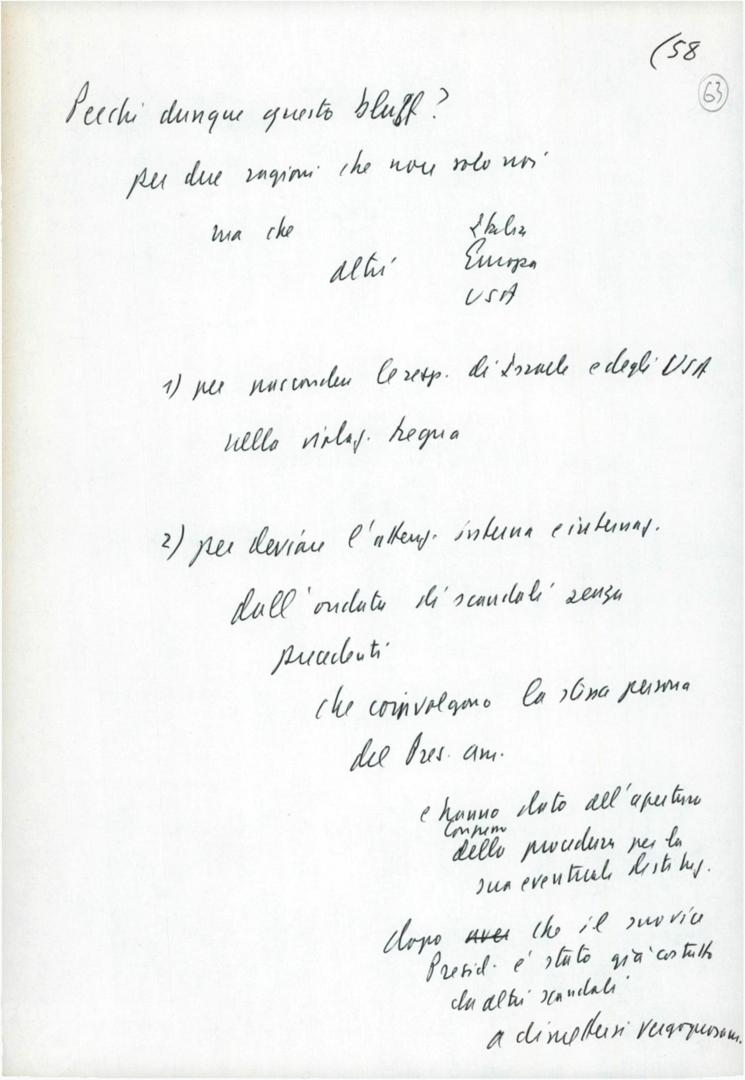 (58
63
Perché dunque questo bluff?
per due ragioni che non solo noi
ma che
Italia
altri Europa
USA
1) per nasconder le resp. di Israele e degli USA
nella violaz. tregua
2) per deviare l'attenz. interna e internaz.
dall'ondata di scandali senza
precedenti
che coinvolgono la stessa persona
del Pres. am.
e hanno dato all'apertura
della procedura per la
sua eventuale destituz.
dopo aver che il suo vice
Presid. è stato già costretto
da altri scandali
a dimettersi vergognosam.